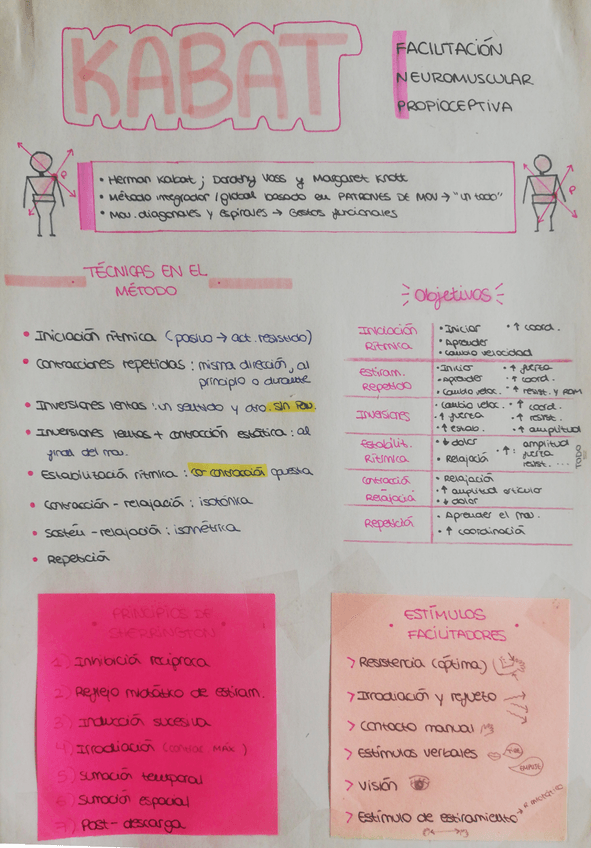 KABAT
FACILITACIÓN
NEUROMUSCULAR
PROPIOCEPTIVA
• Herman Kabat ; Dorothy Voss y Margaret Knott
• Método integrador / global basado en PATRONES DE MOV → "un todo"
• Mov. diagonales y espirales → Gestos funcionales
TÉCNICAS EN EL
MÉTODO
• Iniciación rítmica (pasivo → act. resistido)
• Contracciones repetidas : misma dirección, al
principio o durante
• Inversiones lentas : un sentido y otro. sin Pau.
• Inversiones lentas + contracción estática : al
final del mov.
• Estabilizació rítmica : co-contracción opuesta
• Contracción - relajació : isotónica
• Sostén - relajació : isométrica
• Repetición
Objetivos
Iniciación
Rítmica
• Iniciar • ↑ coord.
• Aprender
• Cambio velocidad
Estiram.
Repetido
• Iniciar • ↑ fuerza
• Aprender • ↑ coord.
• Cambio veloc. • ↑ resist. y ROM
Inversiones
• Cambio veloc. • ↑ coord.
• ↑ fuerza • ↑ resist.
• ↑ estab. • ↑ amplitud
Estabilit.
Rítmica
• ↓ dolor
• Relajació
• ↑: amplitud
fuerza
resist. ...
TODO
Contracció
Relajació
• Relajación
• ↑ amplitud articular
• ↓ dolor
Repetició
• Aprender el mov.
• ↑ coordinació
PRINCIPIOS DE
SHERRINGTON
1) Inhibició recíproca
2) Reflejo miotático de estiram.
3) Inducción sucesiva
4) Irradiación (contrac MÁX)
5) Sumación temporal
6) Sumación espacial
7) Post - descarga
• ESTÍMULOS •
FACILITADORES
> Resistencia (óptima)
> Irradiación y refuerzo
> Contacto manual
> Estímulos verbales
> Visión
> Estímulo de estiramiento → R. miotático